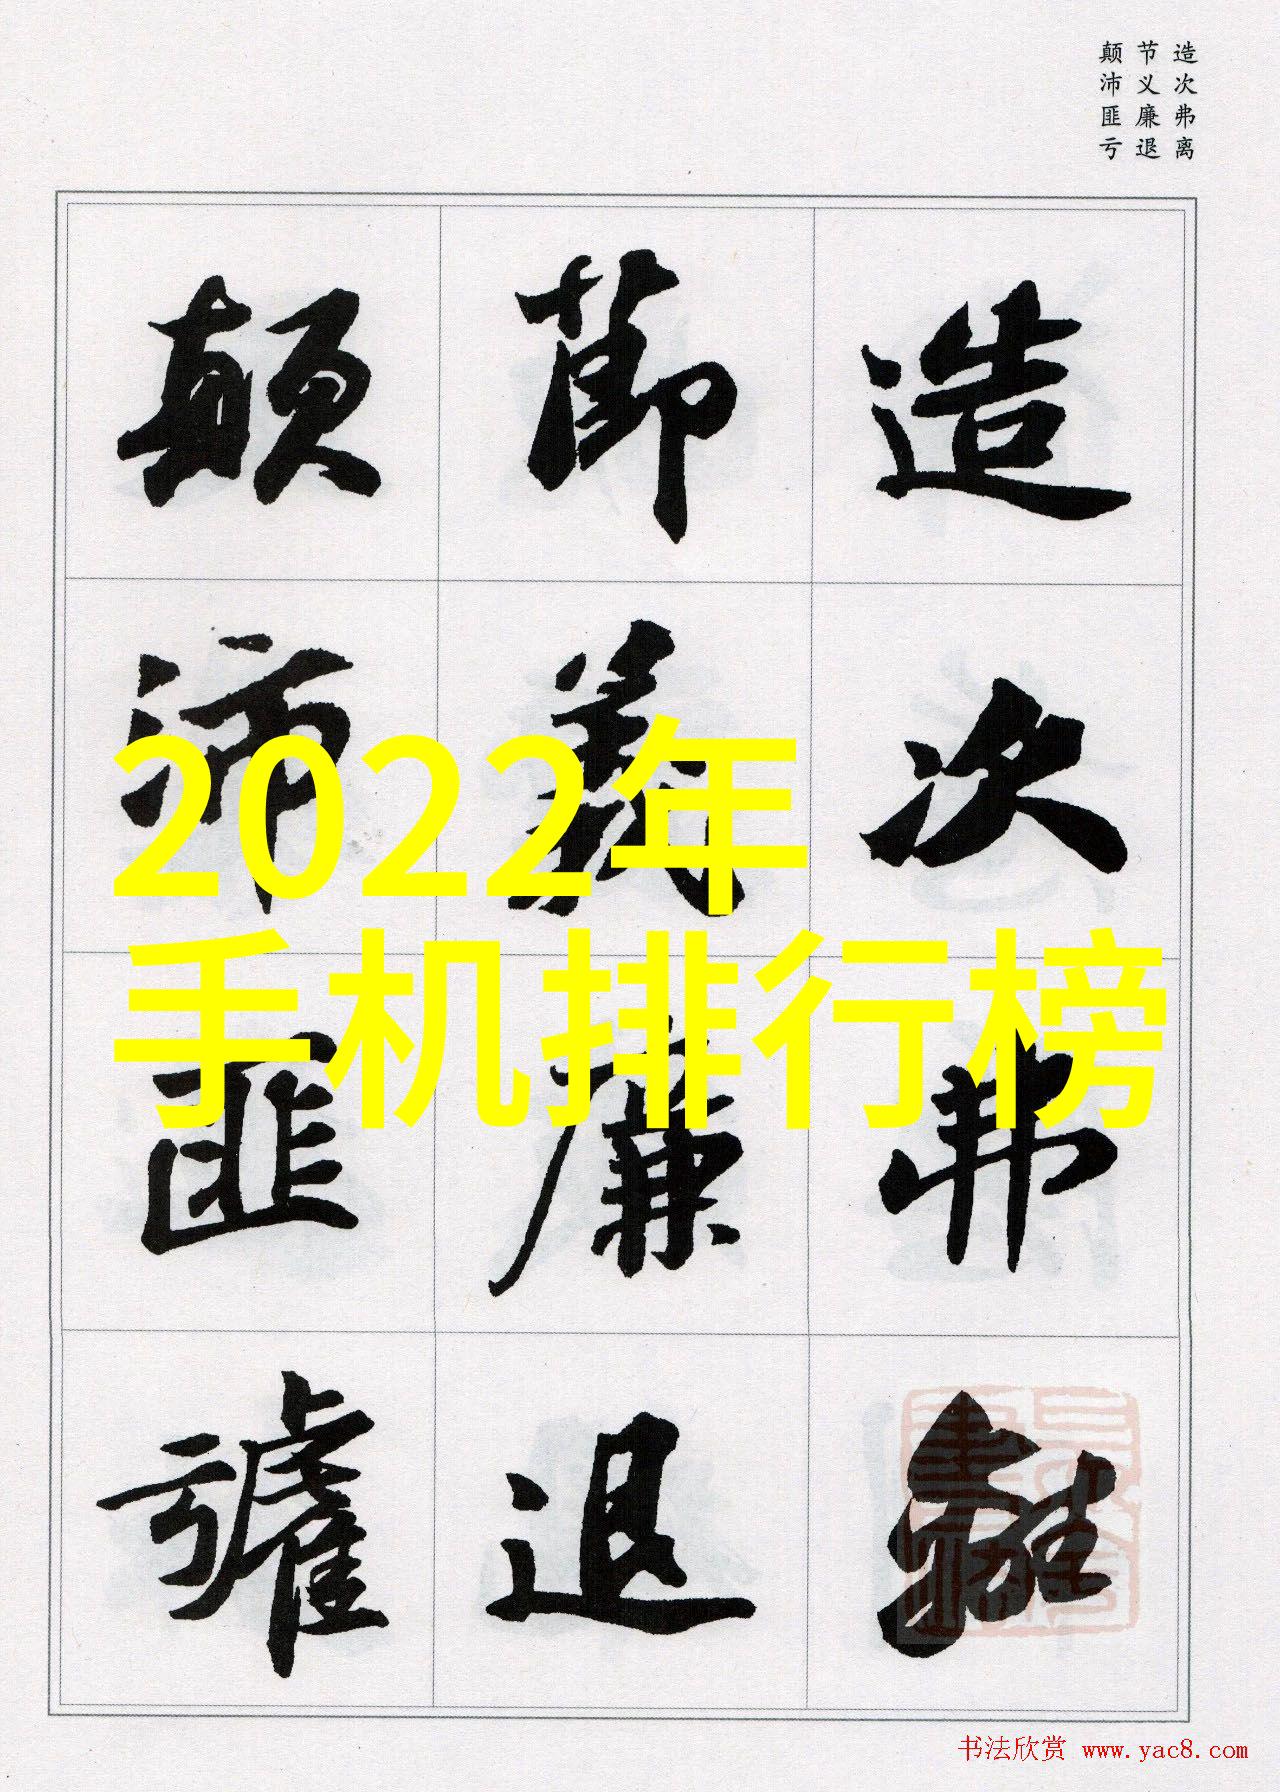 造次弗离
节义廉退
颠沛匪亏
造次弗離
節義廉退
顛沛匪虧
2022年
手机排行榜
书法欣赏 www.yac8.com